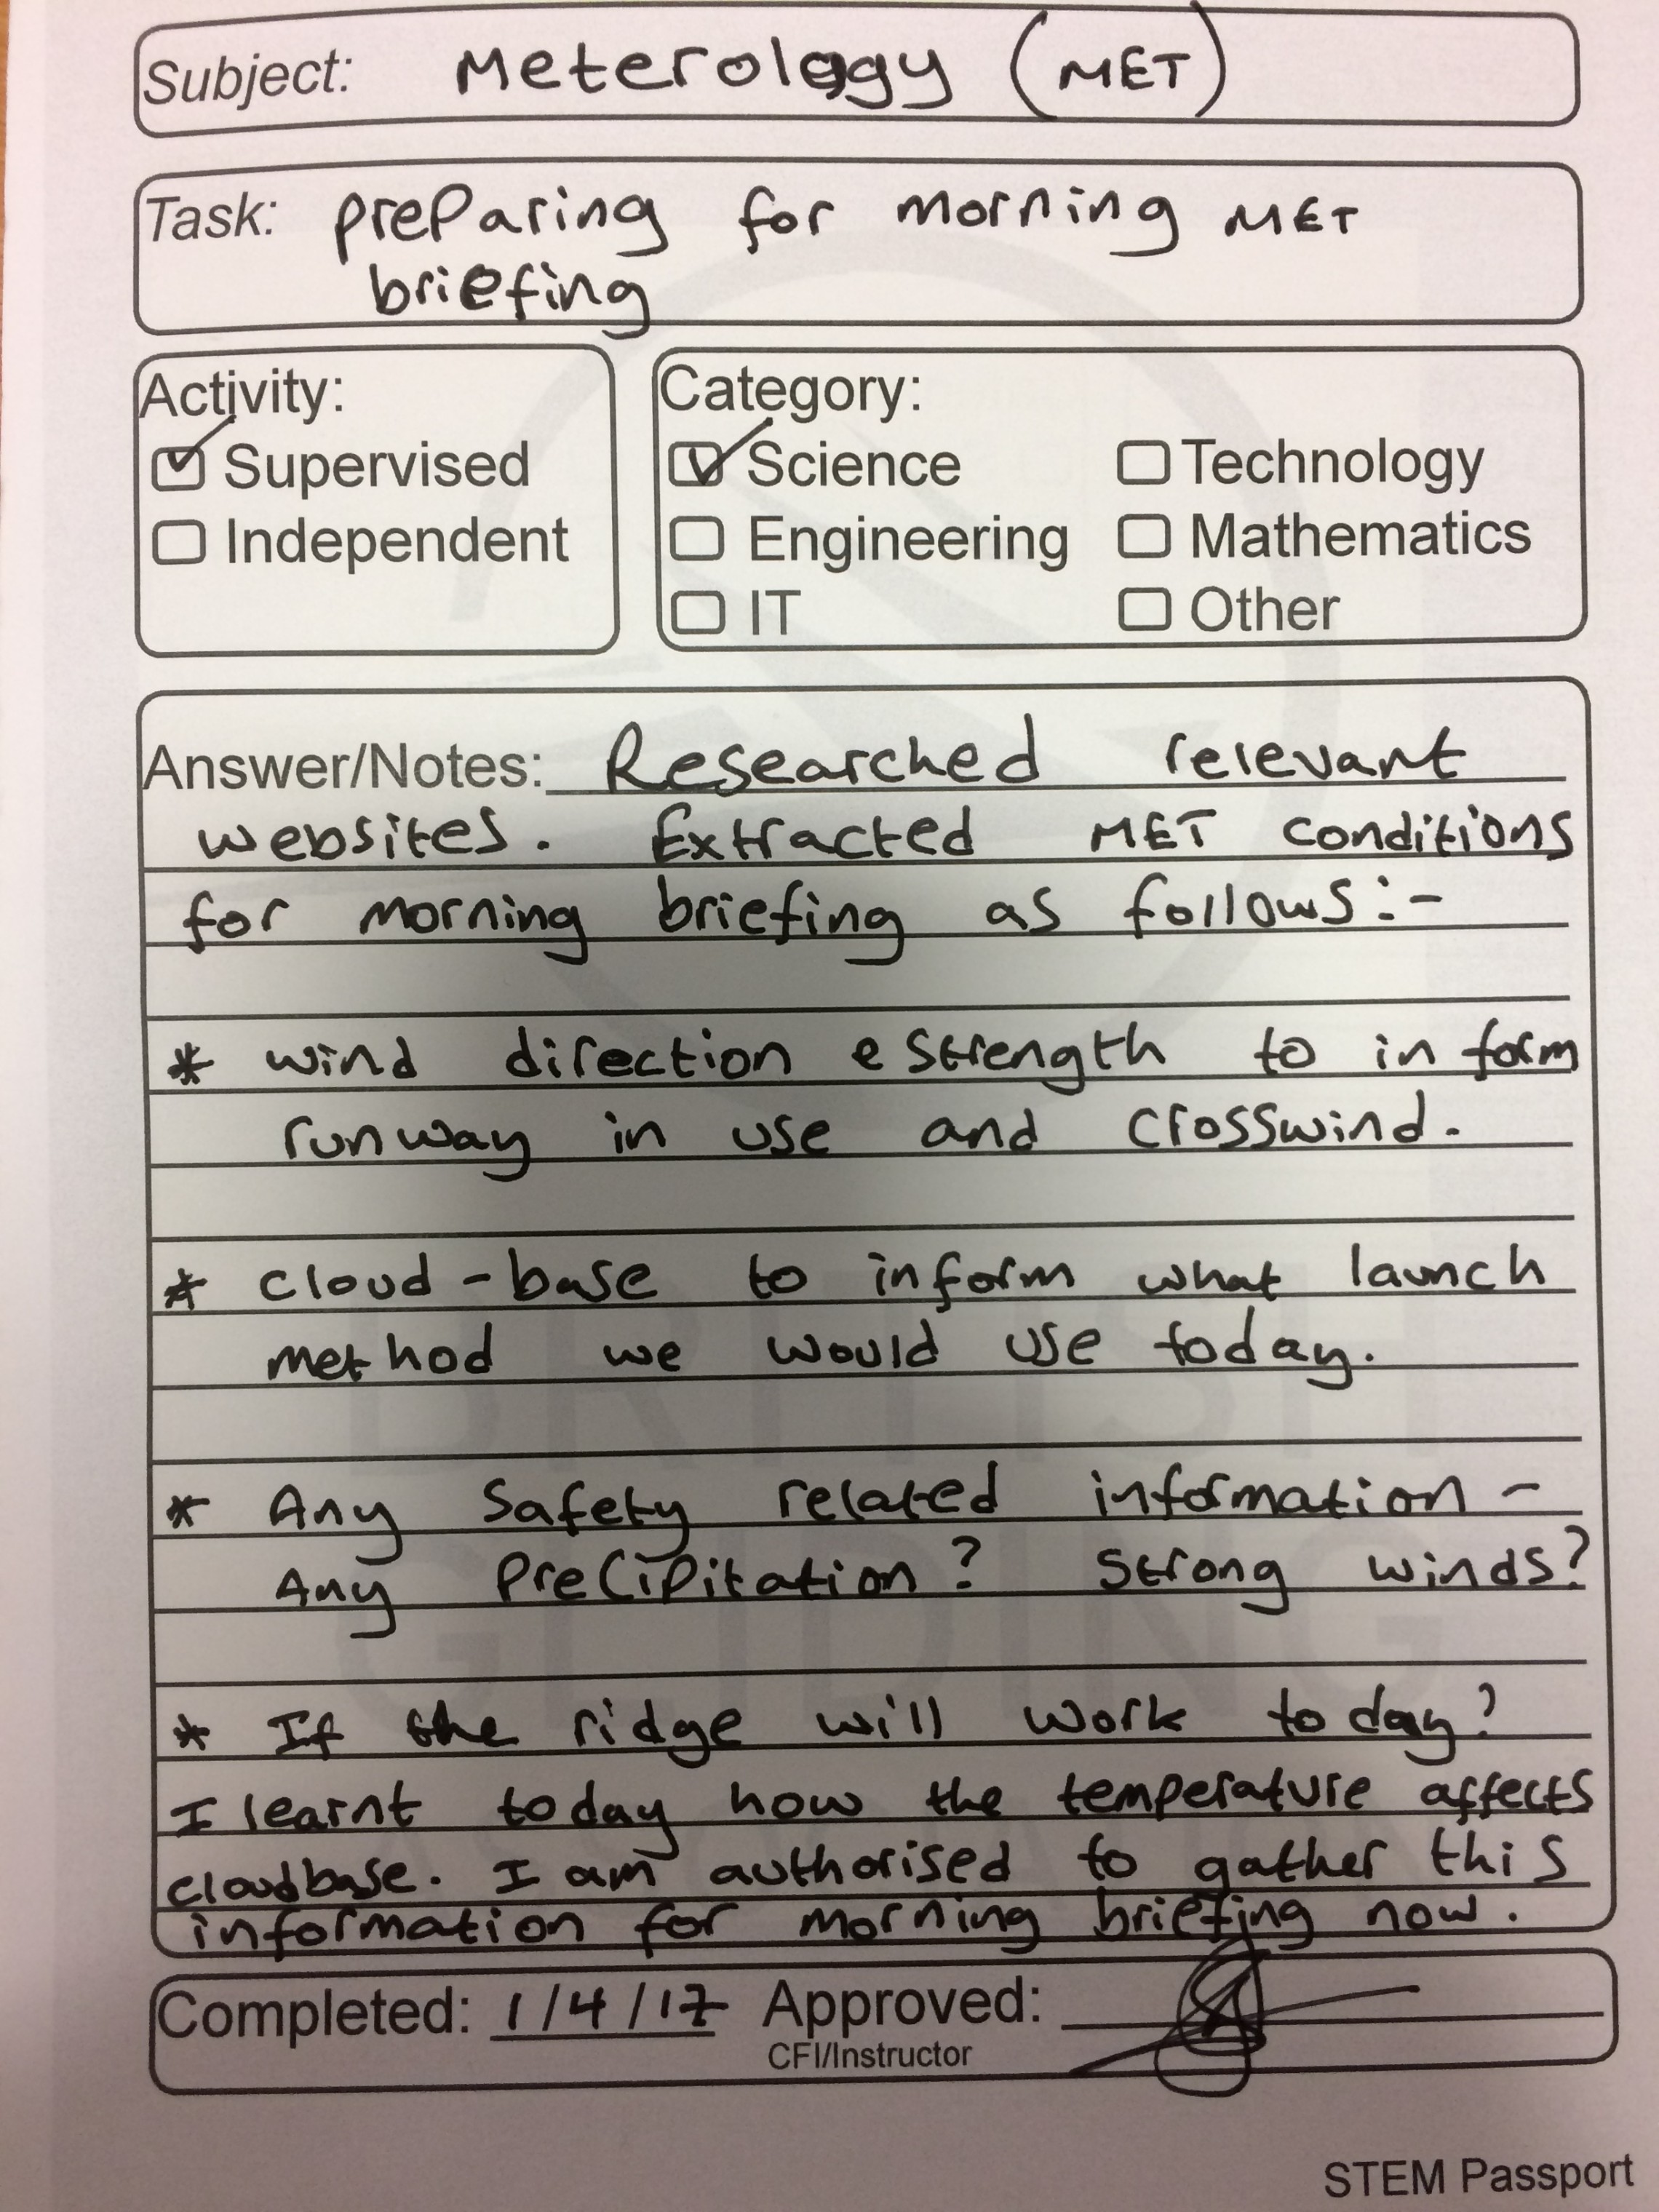 Subject: Meterology (MET)
Task: preparing for morning MET
briefing
Activity:
Supervised
Independent
Category:
Science
Technology
Engineering
Mathematics
IT
Other
Answer/Notes: Researched relevant
websites. Extracted MET conditions
for morning briefing as follows:-
* wind direction & strength to inform
runway in use and crosswind.
* cloud-base to inform what launch
method we would use today.
* Any Safety related information -
Any Precipitation? Strong winds?
* If the ridge will work today?
I learnt today how the temperature affects
cloudbase. I am authorised to gather this
information for morning briefing now.
Completed: 1/4/17 Approved:
CFI/Instructor
STEM Passport
BRITISH
GLIDING